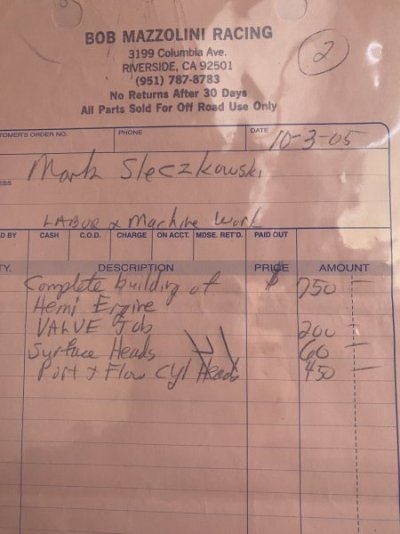 BOB MAZZOLINI RACING
3199 Columbia Ave.
RIVERSIDE, CA 92501
(951) 787-8783
No Returns After 30 Days
All Parts Sold For Off Road Use Only
2
TOMER'S ORDER NO. PHONE DATE 10-3-05
Mark Sleczkowski
ESS
LABOR & Machine Work
D BY CASH C.O.D. CHARGE ON ACCT. MDSE. RET'D. PAID OUT
TY. DESCRIPTION PRICE AMOUNT
Complete building of $ 750 —
Hemi Engine
VALVE Job 200 —
Surface Heads 60 —
Port & Flow Cyl Heads 450 —